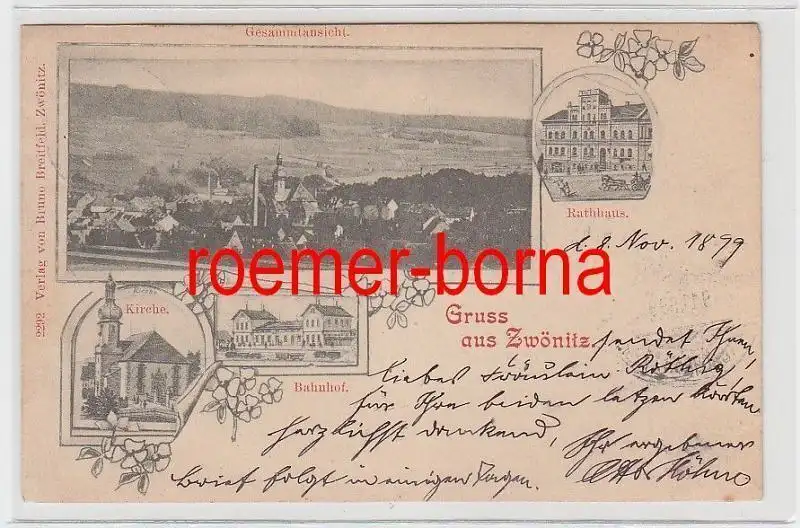 Gesammtansicht.
2292 Verlag von Bruno Breitfeld, Zwönitz.
Rathhaus.
d. 8. Nov. 1899
roemer-borna
Kirche.
Bahnhof.
Gruss
aus Zwönitz
sendet Ihnen,
liebes Fräulein
für Ihre beiden letzen Karten
herzlichst dankend,
Ihr ergebener
Otto
Brief folgt in einigen Tagen.